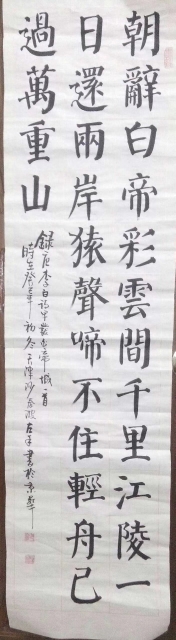 朝辭白帝彩雲間千里江陵一
日還兩岸猿聲啼不住輕舟已
過萬重山
錄唐李白詩早發白帝城一首
時在癸 初冬天津 左手書於京華